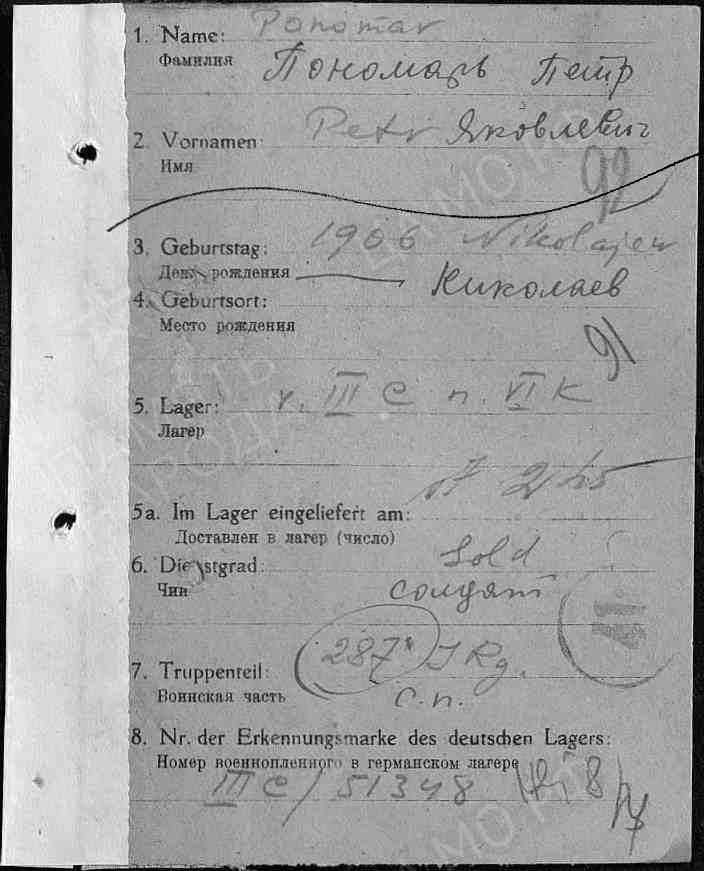 1. Name: Ponomar
Фамилия Пономарь Петр
2. Vornamen: Petr Яковлевич
Имя
92
3. Geburtstag: 1906 Nikolajew
День рождения Николаев
4. Geburtsort:
Место рождения
91
5. Lager: v. III C n. VI K
Лагер
5a. Im Lager eingeliefert am:
Доставлен в лагер (число)
6. Dienstgrad: Sold
Чин солдат
7. Truppenteil: 287 I Rg.
Воинская часть с.п.
8. Nr. der Erkennungsmarke des deutschen Lagers:
Номер военнопленного в германском лагере
III C / 51348